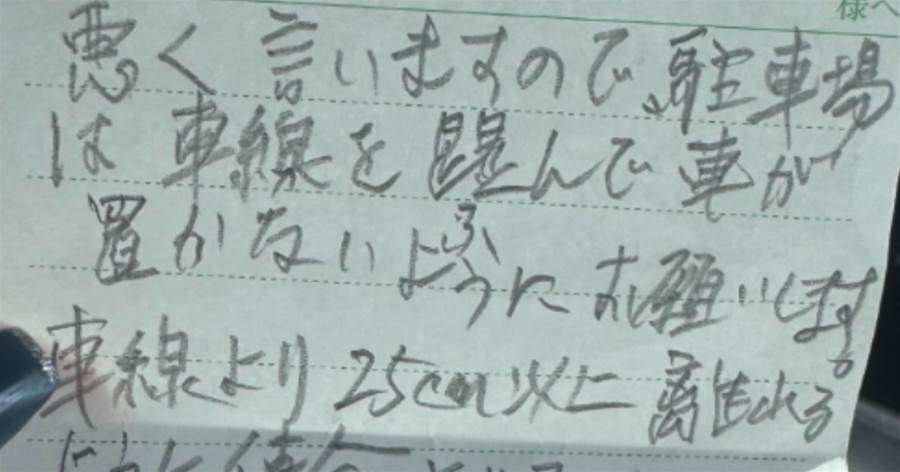 様へ
悪く言いますので、駐車場
は車線を踏んで車が
置かないようにお願いします。
車線より25cm以上離れる